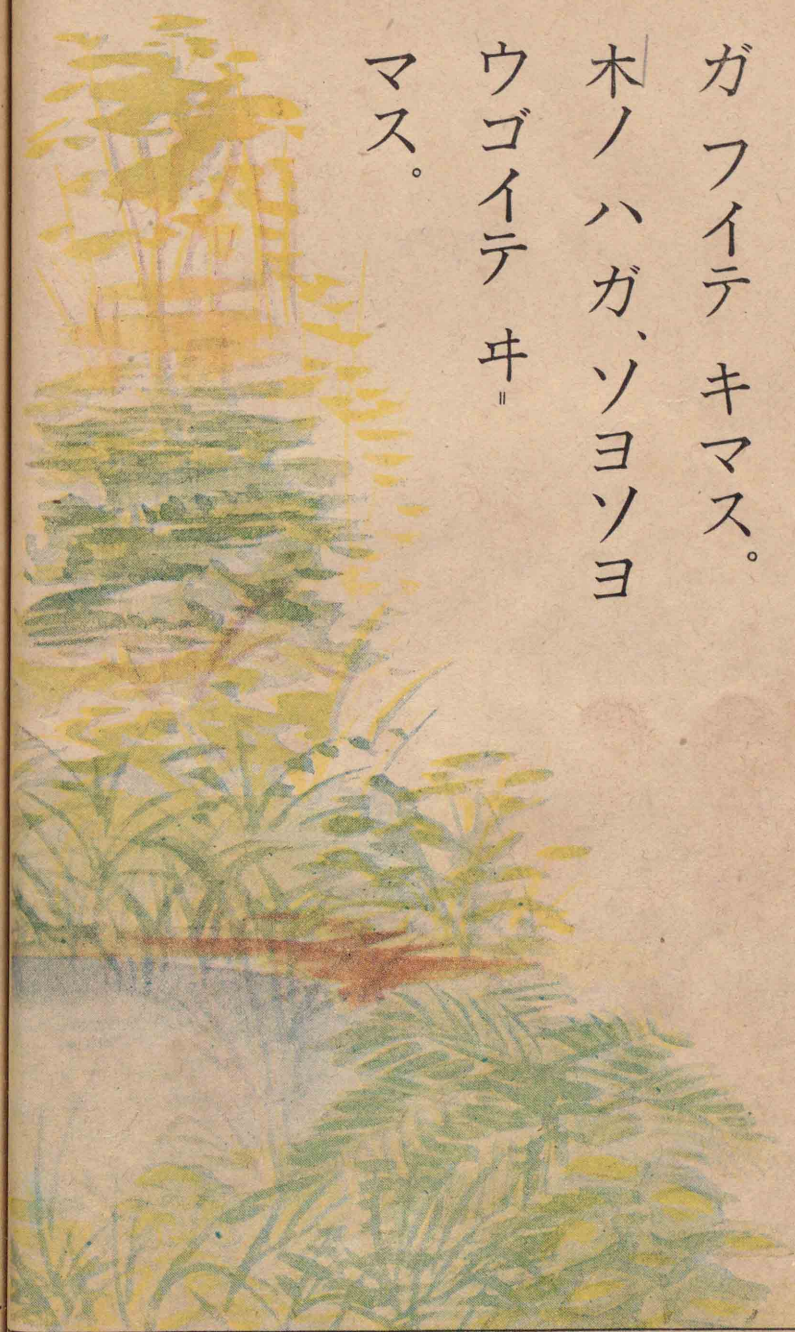 ガ フイテ キマス。
木ノ ハ ガ、ソヨソヨ
ウゴイテ ヰ＝
マス。